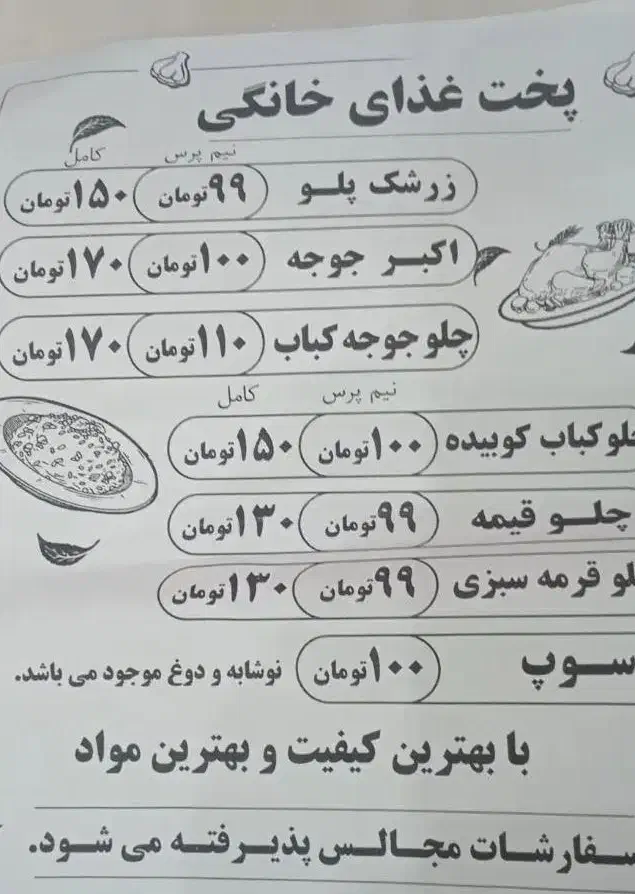 پخت غذای خانگی
نیم پرس کامل
زرشک پلو ۹۹تومان ۱۵۰تومان
اکبر جوجه ۱۰۰تومان ۱۷۰تومان
چلو جوجه کباب ۱۱۰تومان ۱۷۰تومان
نیم پرس کامل
کباب کوبیده ۱۰۰تومان ۱۵۰تومان
چلو قیمه ۹۹تومان ۱۳۰تومان
قرمه سبزی ۹۹تومان ۱۳۰تومان
سوپ ۱۰۰تومان نوشابه و دوغ موجود می باشد.
با بهترین کیفیت و بهترین مواد
سفارشات مجالس پذیرفته می شود.